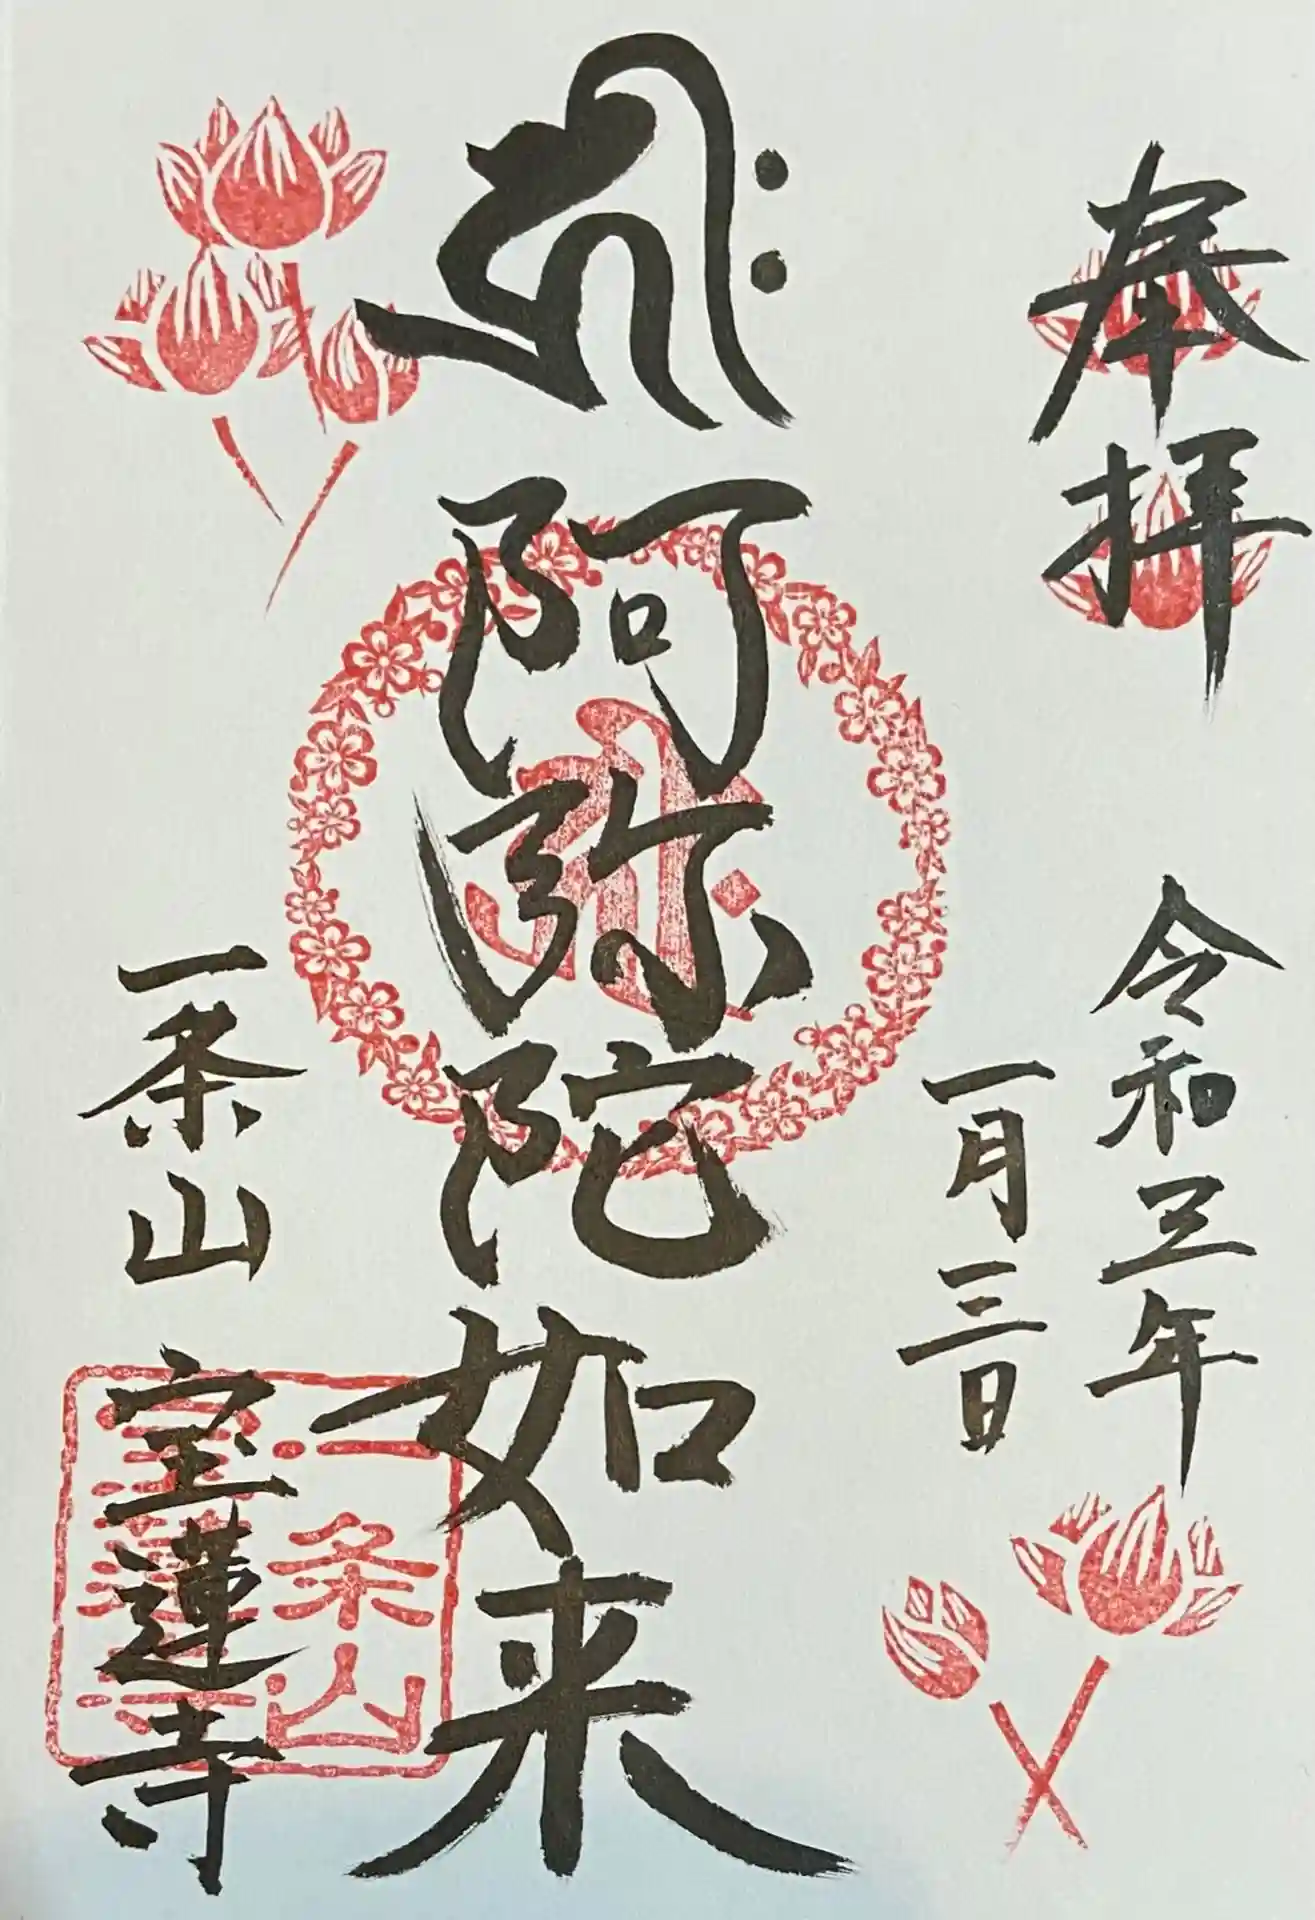 奉拝
令和五年
一月三日
キリーク
阿弥陀如来
一条山
宝蓮寺
一条山
宝蓮寺